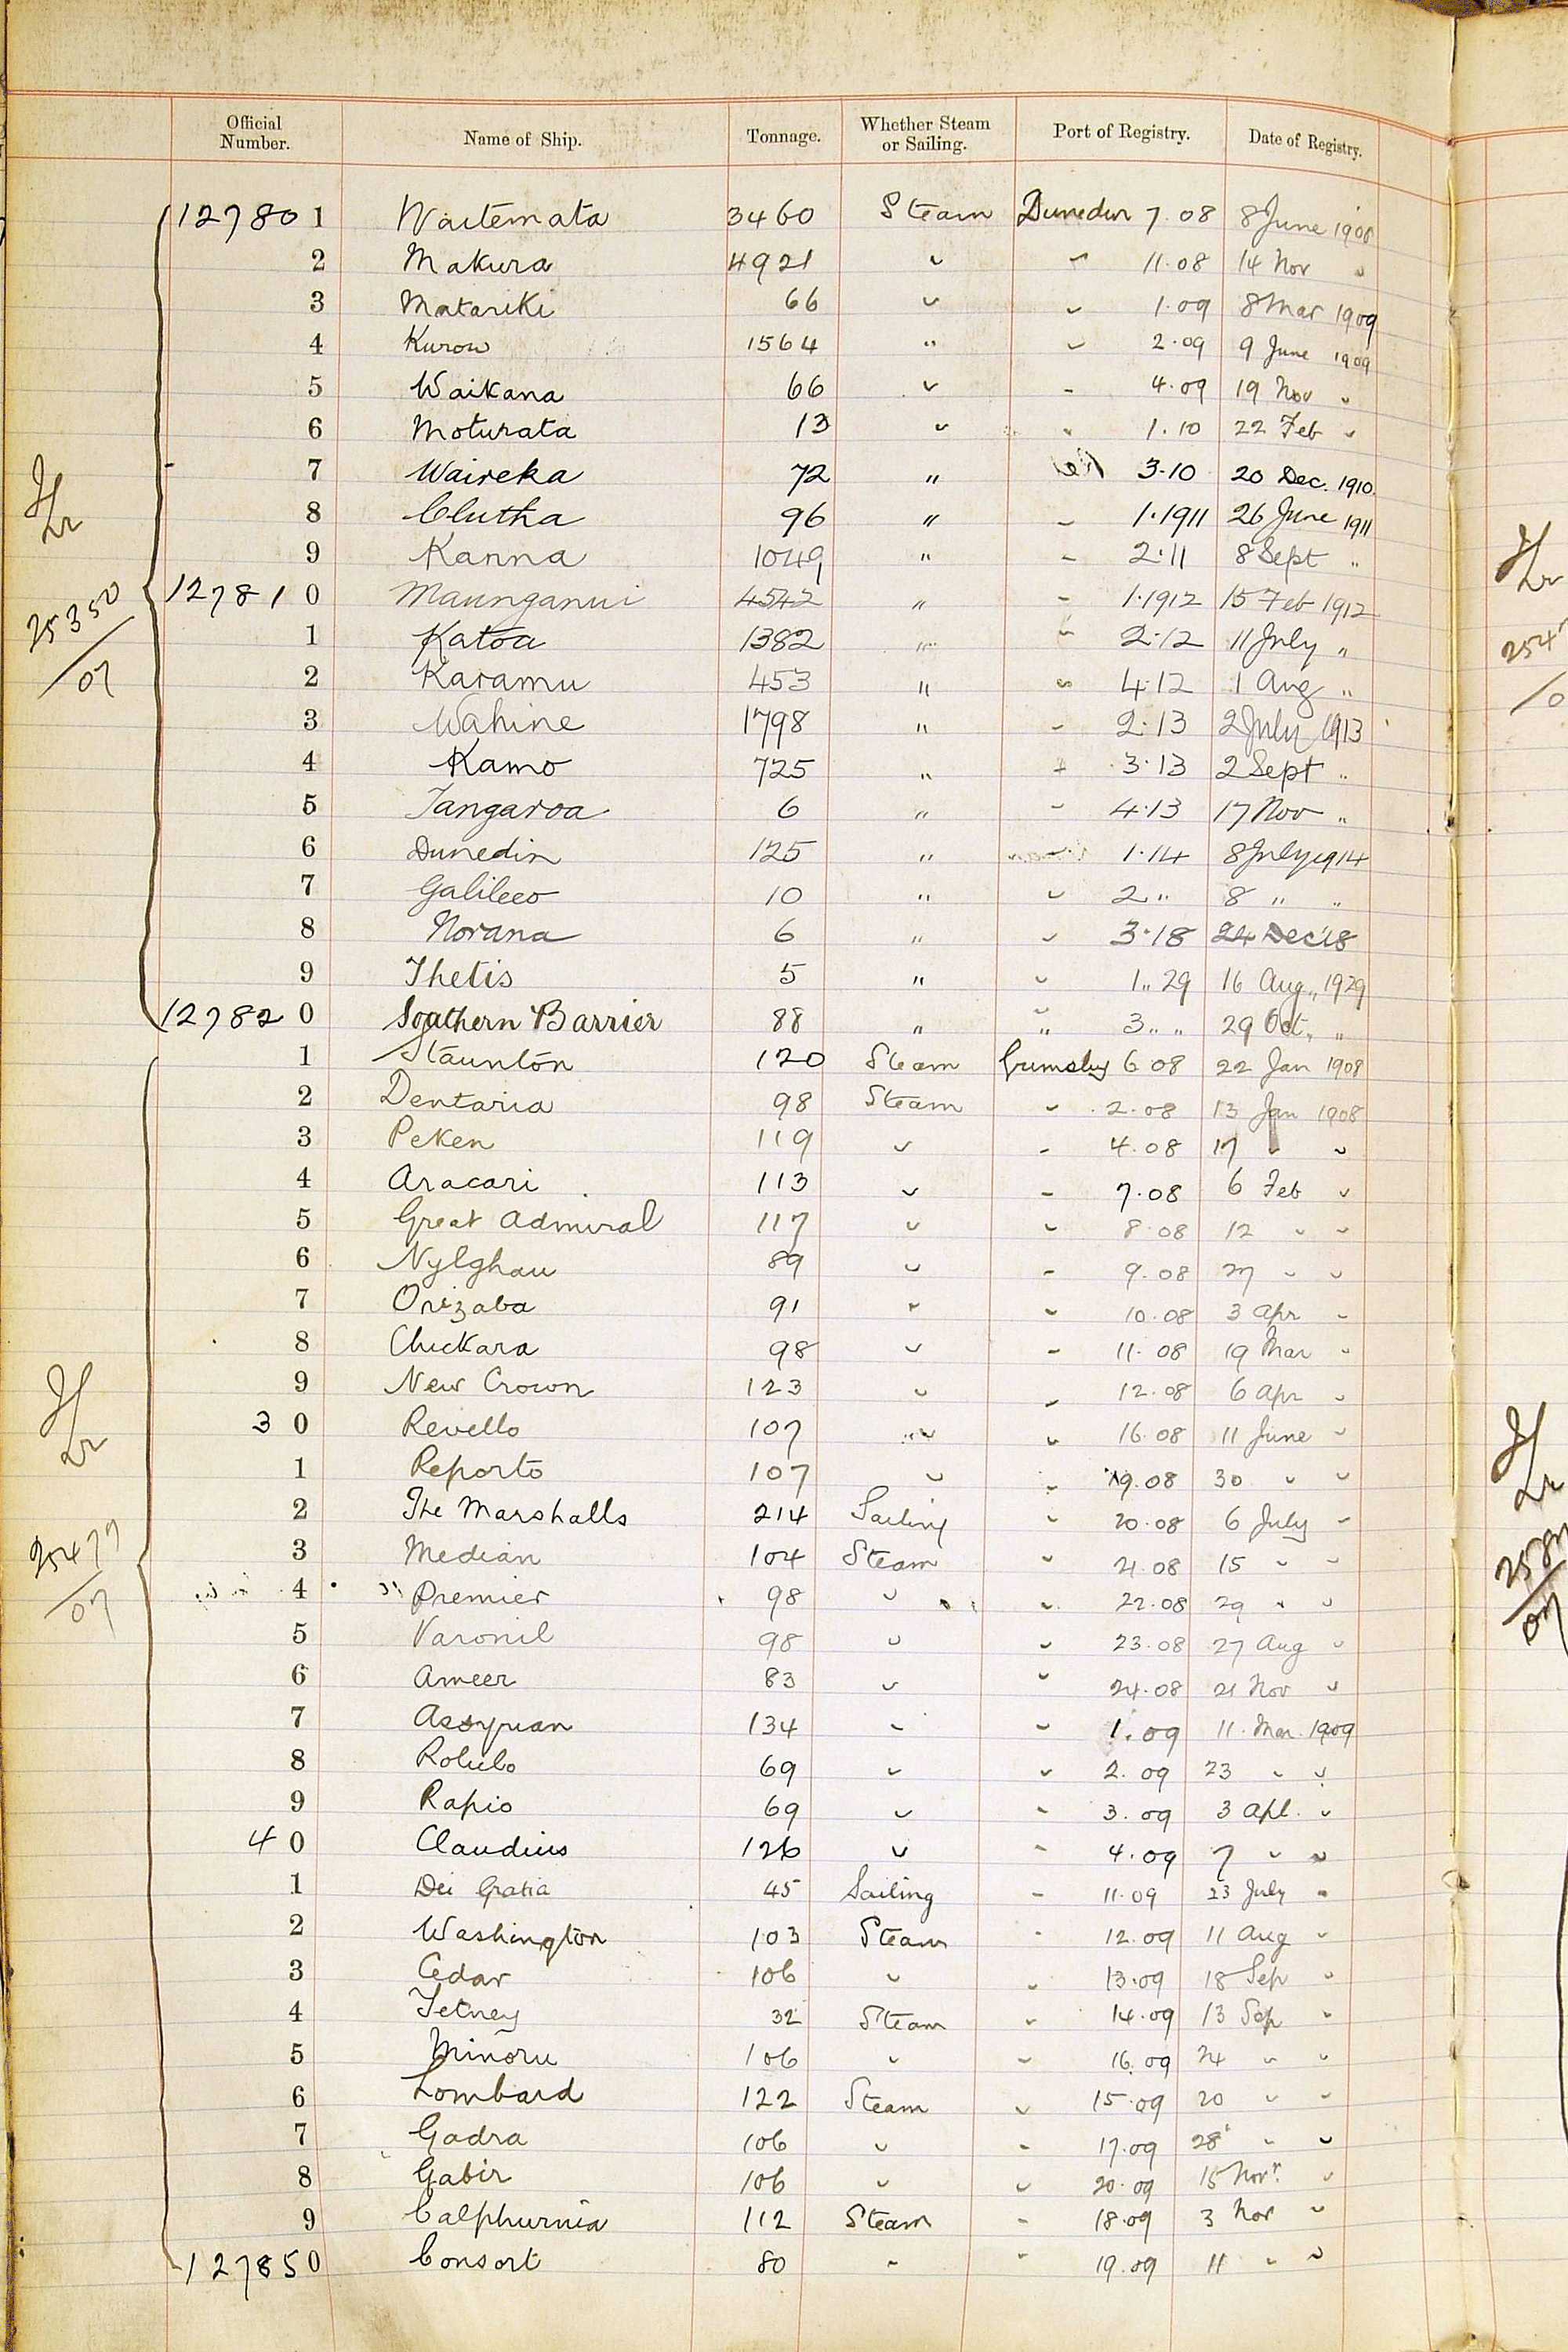 Official Number. Name of Ship. Tonnage. Whether Steam or Sailing. Port of Registry. Date of Registry.
127801 Waitemata 3460 Steam Dunedin 7.08 8 June 1908
2 Makura 4921 " " 11.08 14 Nov "
3 Matariki 66 " " 1.09 8 Mar 1909
4 Kurow 1564 " " 2.09 9 June 1909
5 Waikana 66 " " 4.09 19 Nov "
6 Moturata 13 " " 1.10 22 Feb "
7 Waireka 72 " 3.10 20 Dec. 1910
8 Clutha 96 " " 1.1911 26 June 1911
9 Kanna 1049 " " 2.11 8 Sept "
127810 Maunganui 4542 " " 1.1912 15 Feb 1912
1 Katoa 1382 " " 2.12 11 July "
2 Karamu 453 " " 4.12 1 Aug "
3 Wahine 1798 " " 2.13 2 July 1913
4 Kamo 725 " " 3.13 2 Sept "
5 Tangaroa 6 " " 4.13 17 Nov "
6 Dunedin 125 " " 1.14 8 July 1914
7 Galileo 10 " " 2 " 8 " "
8 Norana 6 " " 3.18 24 Dec '18
9 Thetis 5 " " 1 " 29 16 Aug " 1929
127820 Southern Barrier 88 " " 3 " " 29 Oct. "
1 Staunton 120 Steam Grimsby 6 08 22 Jan 1908
2 Dentaria 98 Steam " 2.08 13 Jan 1908
3 Peken 119 " " 4.08 17 " "
4 Aracari 113 " " 7.08 6 Feb "
5 Great Admiral 117 " " 8.08 12 " "
6 Nylghau 89 " " 9.08 27 " "
7 Orizaba 91 " " 10.08 3 Apr "
8 Chickara 98 " " 11.08 19 Mar "
9 New Crown 123 " " 12.08 6 Apr "
30 Revello 107 " " 16.08 11 June "
1 Reporto 107 " " 19.08 30 " "
2 The Marshalls 214 Sailing " 20.08 6 July "
3 Median 104 Steam " 21.08 15 " "
4 Premier 98 " " 22.08 29 " "
5 Varonil 98 " " 23.08 27 Aug "
6 Ameer 83 " " 24.08 21 Nov "
7 Assyrian 134 " " 1.09 11 Mar 1909
8 Rolulo 69 " " 2.09 23 " "
9 Rapio 69 " " 3.09 3 Apl. "
40 Claudius 126 " " 4.09 7 " "
1 Dei Gratia 45 Sailing " 11.09 23 July "
2 Washington 103 Steam " 12.09 11 Aug "
3 Cedar 106 " " 13.09 18 Sep "
4 Tetney 32 Steam " 14.09 13 Sep "
5 Minoru 106 " " 16.09 24 " "
6 Lombard 122 Steam " 15.09 20 " "
7 Gadra 106 " " 17.09 28 " "
8 Gabir 106 " " 20.09 15 Novr. "
9 Calphurnia 112 Steam " 18.09 3 Nov "
127850 Consort 80 " " 19.09 11 " "
25350
/07
25477
/07